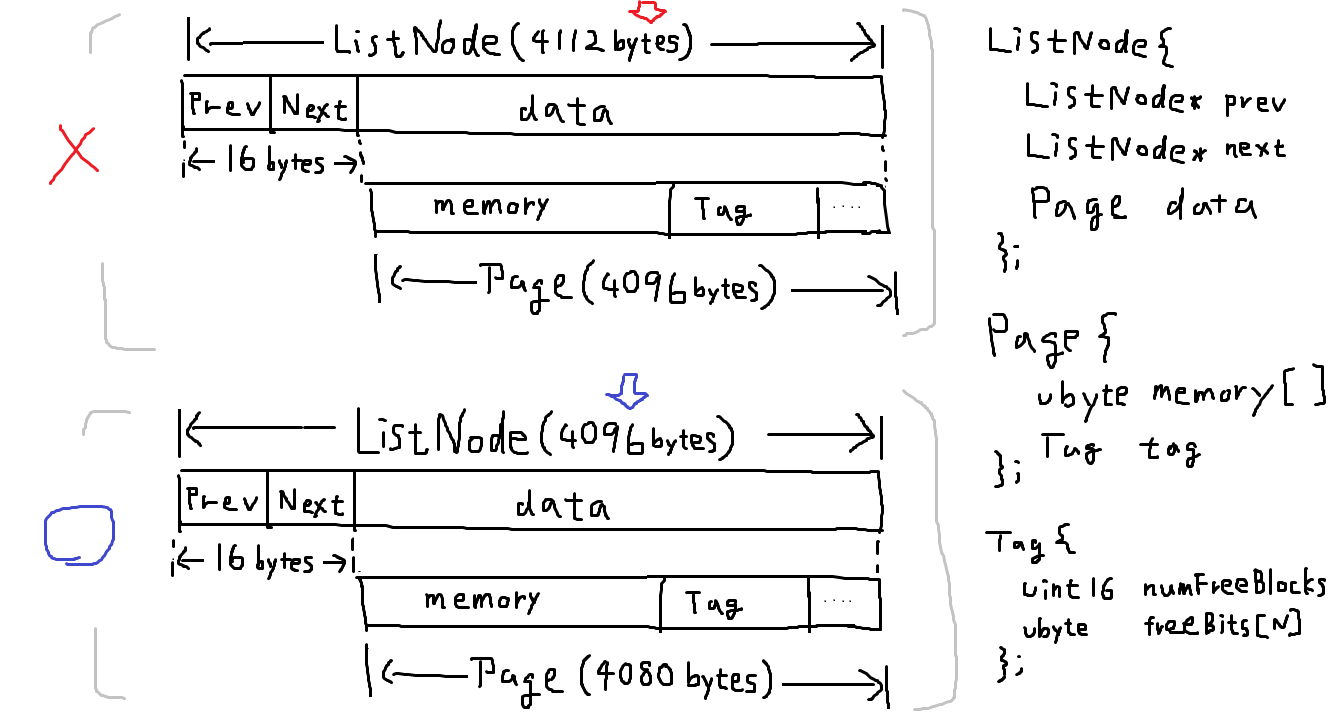 ListNode(4112bytes)
Prev Next data
16 bytes
memory Tag ....
Page(4096bytes)
ListNode(4096bytes)
Prev Next data
16 bytes
memory Tag ....
Page (4080 bytes)
ListNode{
ListNode* prev
ListNode* next
Page data
};
Page {
ubyte memory[ ]
Tag tag
};
Tag {
uint16 numFreeBlocks
ubyte freeBits[N]
};